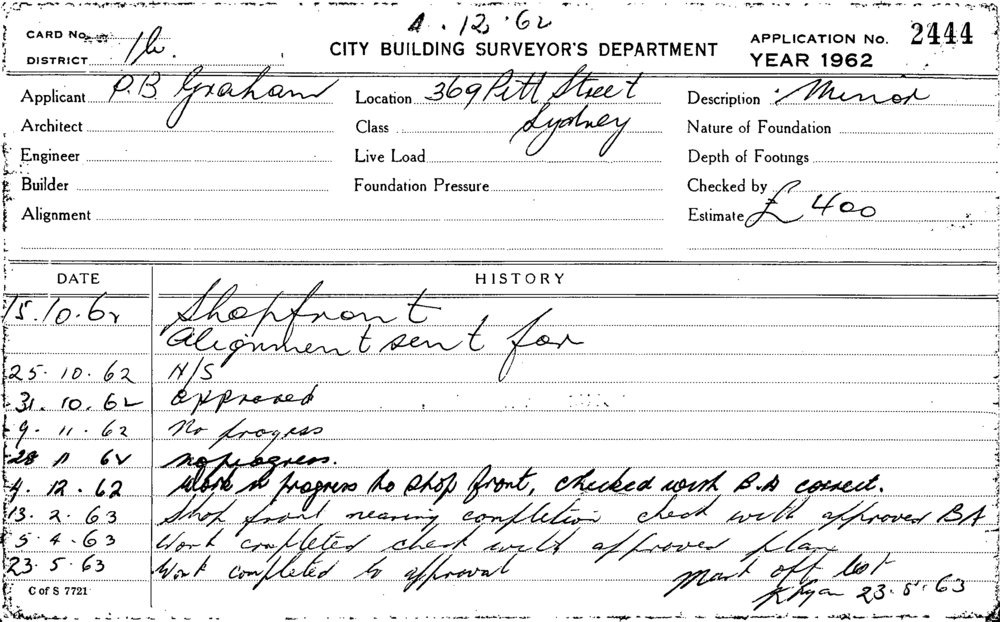 4.12.62
CARD No.
DISTRICT
CITY BUILDING SURVEYOR'S DEPARTMENT
APPLICATION No. 2444
YEAR 1962
Applicant P.B Graham
Location 369 Pitt Street
Sydney
Description Minor
Architect
Class
Nature of Foundation
Engineer
Live Load
Depth of Footings
Builder
Foundation Pressure
Checked by
Alignment
Estimate £ 400
DATE HISTORY
15.10.62 Shopfront
Alignment sent for
25.10.62 N/S
31.10.62 approved
9.11.62 No progress
28 11 62 no progress.
4.12.62 Work in progress to shop front, checked with B.A correct.
13.2.63 Shop front nearing completion check with approved BA
5.4.63 Work completed check with approved plan
23.5.63 Work completed to approval
Mark off list
C of S 7721
K Ryan 23.5.63